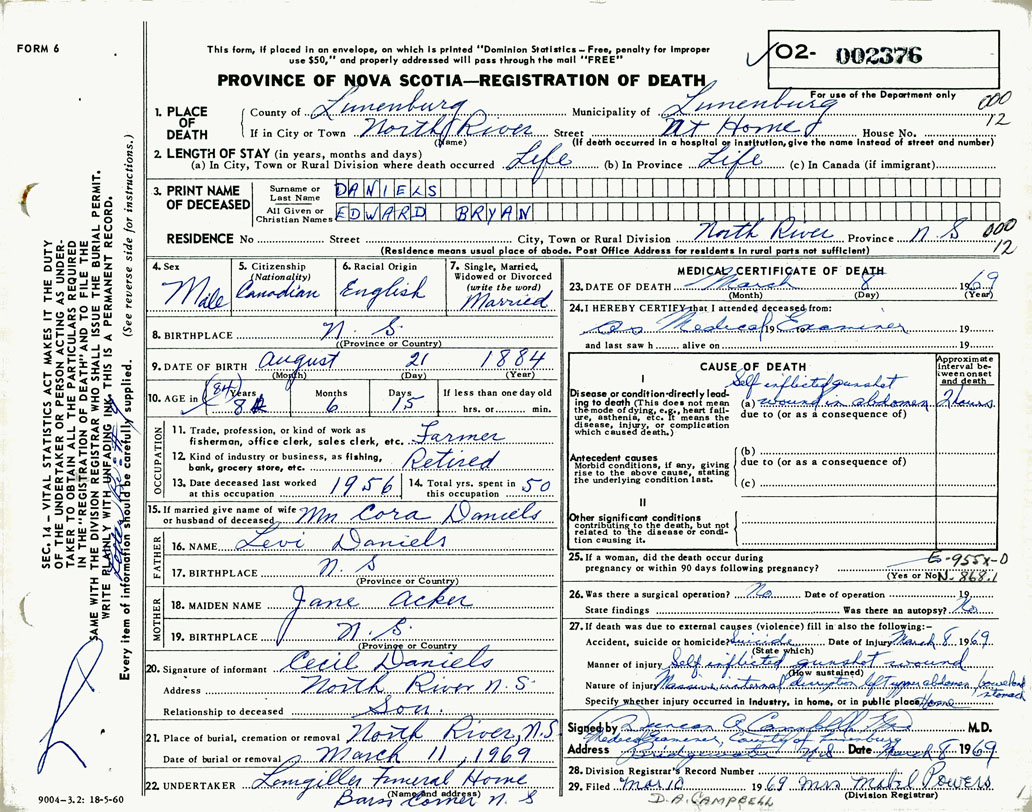 FORM 6
This form, if placed in an envelope, on which is printed "Dominion Statistics – Free, penalty for improper
use $50," and properly addressed will pass through the mail "FREE"
O2- 002376
PROVINCE OF NOVA SCOTIA—REGISTRATION OF DEATH
For use of the Department only
000
12
1. PLACE OF DEATH
County of Lunenburg Municipality of Lunenburg
If in City or Town North River Street At Home House No.
(Name) (If death occurred in a hospital or institution, give the name instead of street and number)
2. LENGTH OF STAY (in years, months and days)
(a) In City, Town or Rural Division where death occurred Life (b) In Province Life (c) In Canada (if immigrant)
3. PRINT NAME OF DECEASED
Surname or Last Name DANIELS
All Given or Christian Names EDWARD BRYAN
RESIDENCE No Street City, Town or Rural Division North River Province N. S
000
12
(Residence means usual place of abode. Post Office Address for residents in rural parts not sufficient)
4. Sex Male
5. Citizenship (Nationality) Canadian
6. Racial Origin English
7. Single, Married, Widowed or Divorced (write the word) Married
8. BIRTHPLACE N. S.
(Province or Country)
9. DATE OF BIRTH August 21 1884
(Month) (Day) (Year)
10. AGE in (84) Years Months 6 Days 15 If less than one day old hrs. or min.
OCCUPATION
11. Trade, profession, or kind of work as
fisherman, office clerk, sales clerk, etc. Farmer
12. Kind of industry or business, as fishing,
bank, grocery store, etc. Retired
13. Date deceased last worked
at this occupation 1956
14. Total yrs. spent in
this occupation 50
15. If married give name of wife
or husband of deceased Mrs Cora Daniels
FATHER
16. NAME Levi Daniels
17. BIRTHPLACE N. S
(Province or Country)
MOTHER
18. MAIDEN NAME Jane Acker
19. BIRTHPLACE N. S.
(Province or Country)
20. Signature of informant Cecil Daniels
Address North River N. S.
Relationship to deceased Son.
21. Place of burial, cremation or removal North River, N.S.
Date of burial or removal March 11, 1969
22. UNDERTAKER Funeral Home
(Name and address) N. S
MEDICAL CERTIFICATE OF DEATH
23. DATE OF DEATH March 8 1969
(Month) (Day) (Year)
24. I HEREBY CERTIFY that I attended deceased from:
as Medical 19 Examiner 19
and last saw h alive on 19
CAUSE OF DEATH
Approximate interval between onset and death
I
Disease or condition directly leading to death (This does not mean the mode of dying, e.g., heart failure, asthenia, etc. It means the disease, injury, or complication which caused death.)
Self inflicted gunshot
(a) wound in abdomen 2 hours
due to (or as a consequence of)
Antecedent causes
Morbid conditions, if any, giving rise to the above cause, stating the underlying condition last.
(b)
due to (or as a consequence of)
(c)
II
Other significant conditions
contributing to the death, but not related to the disease or condition causing it.
25. If a woman, did the death occur during
pregnancy or within 90 days following pregnancy?
(Yes or No)
E-955X-0
N-868.1
26. Was there a surgical operation? No Date of operation 19
State findings Was there an autopsy? No
27. If death was due to external causes (violence) fill in also the following:-
Accident, suicide or homicide? Suicide Date of Injury March 8 1969
(State which)
Manner of injury Self inflicted gunshot wound
(How sustained)
Nature of injury Massive internal disruption left upper abdomen, bowel and stomach
Specify whether injury occurred in Industry, in home, or in public place Home
Signed by Duncan A Campbell M.D.
Medical Examiner, County of Lunenburg
Address N.S Date March 8 1969
28. Division Registrar's Record Number
29. Filed Mar 10 1969 Mrs Mabel Powers
(Division Registrar)
D.A. CAMPBELL
SEC. 14 – VITAL STATISTICS ACT MAKES IT THE DUTY
OF THE UNDERTAKER OR PERSON ACTING AS UNDER-
TAKER TO OBTAIN ALL THE PARTICULARS REQUIRED
IN THE "REGISTRATION OF DEATH" AND TO FILE THE
SAME WITH THE DIVISION REGISTRAR WHO SHALL ISSUE THE BURIAL PERMIT.
WRITE PLAINLY WITH UNFADING INK. THIS IS A PERMANENT RECORD.
Every item of information should be carefully supplied. (See reverse side for instructions.)
9004–3.2: 18-5-60